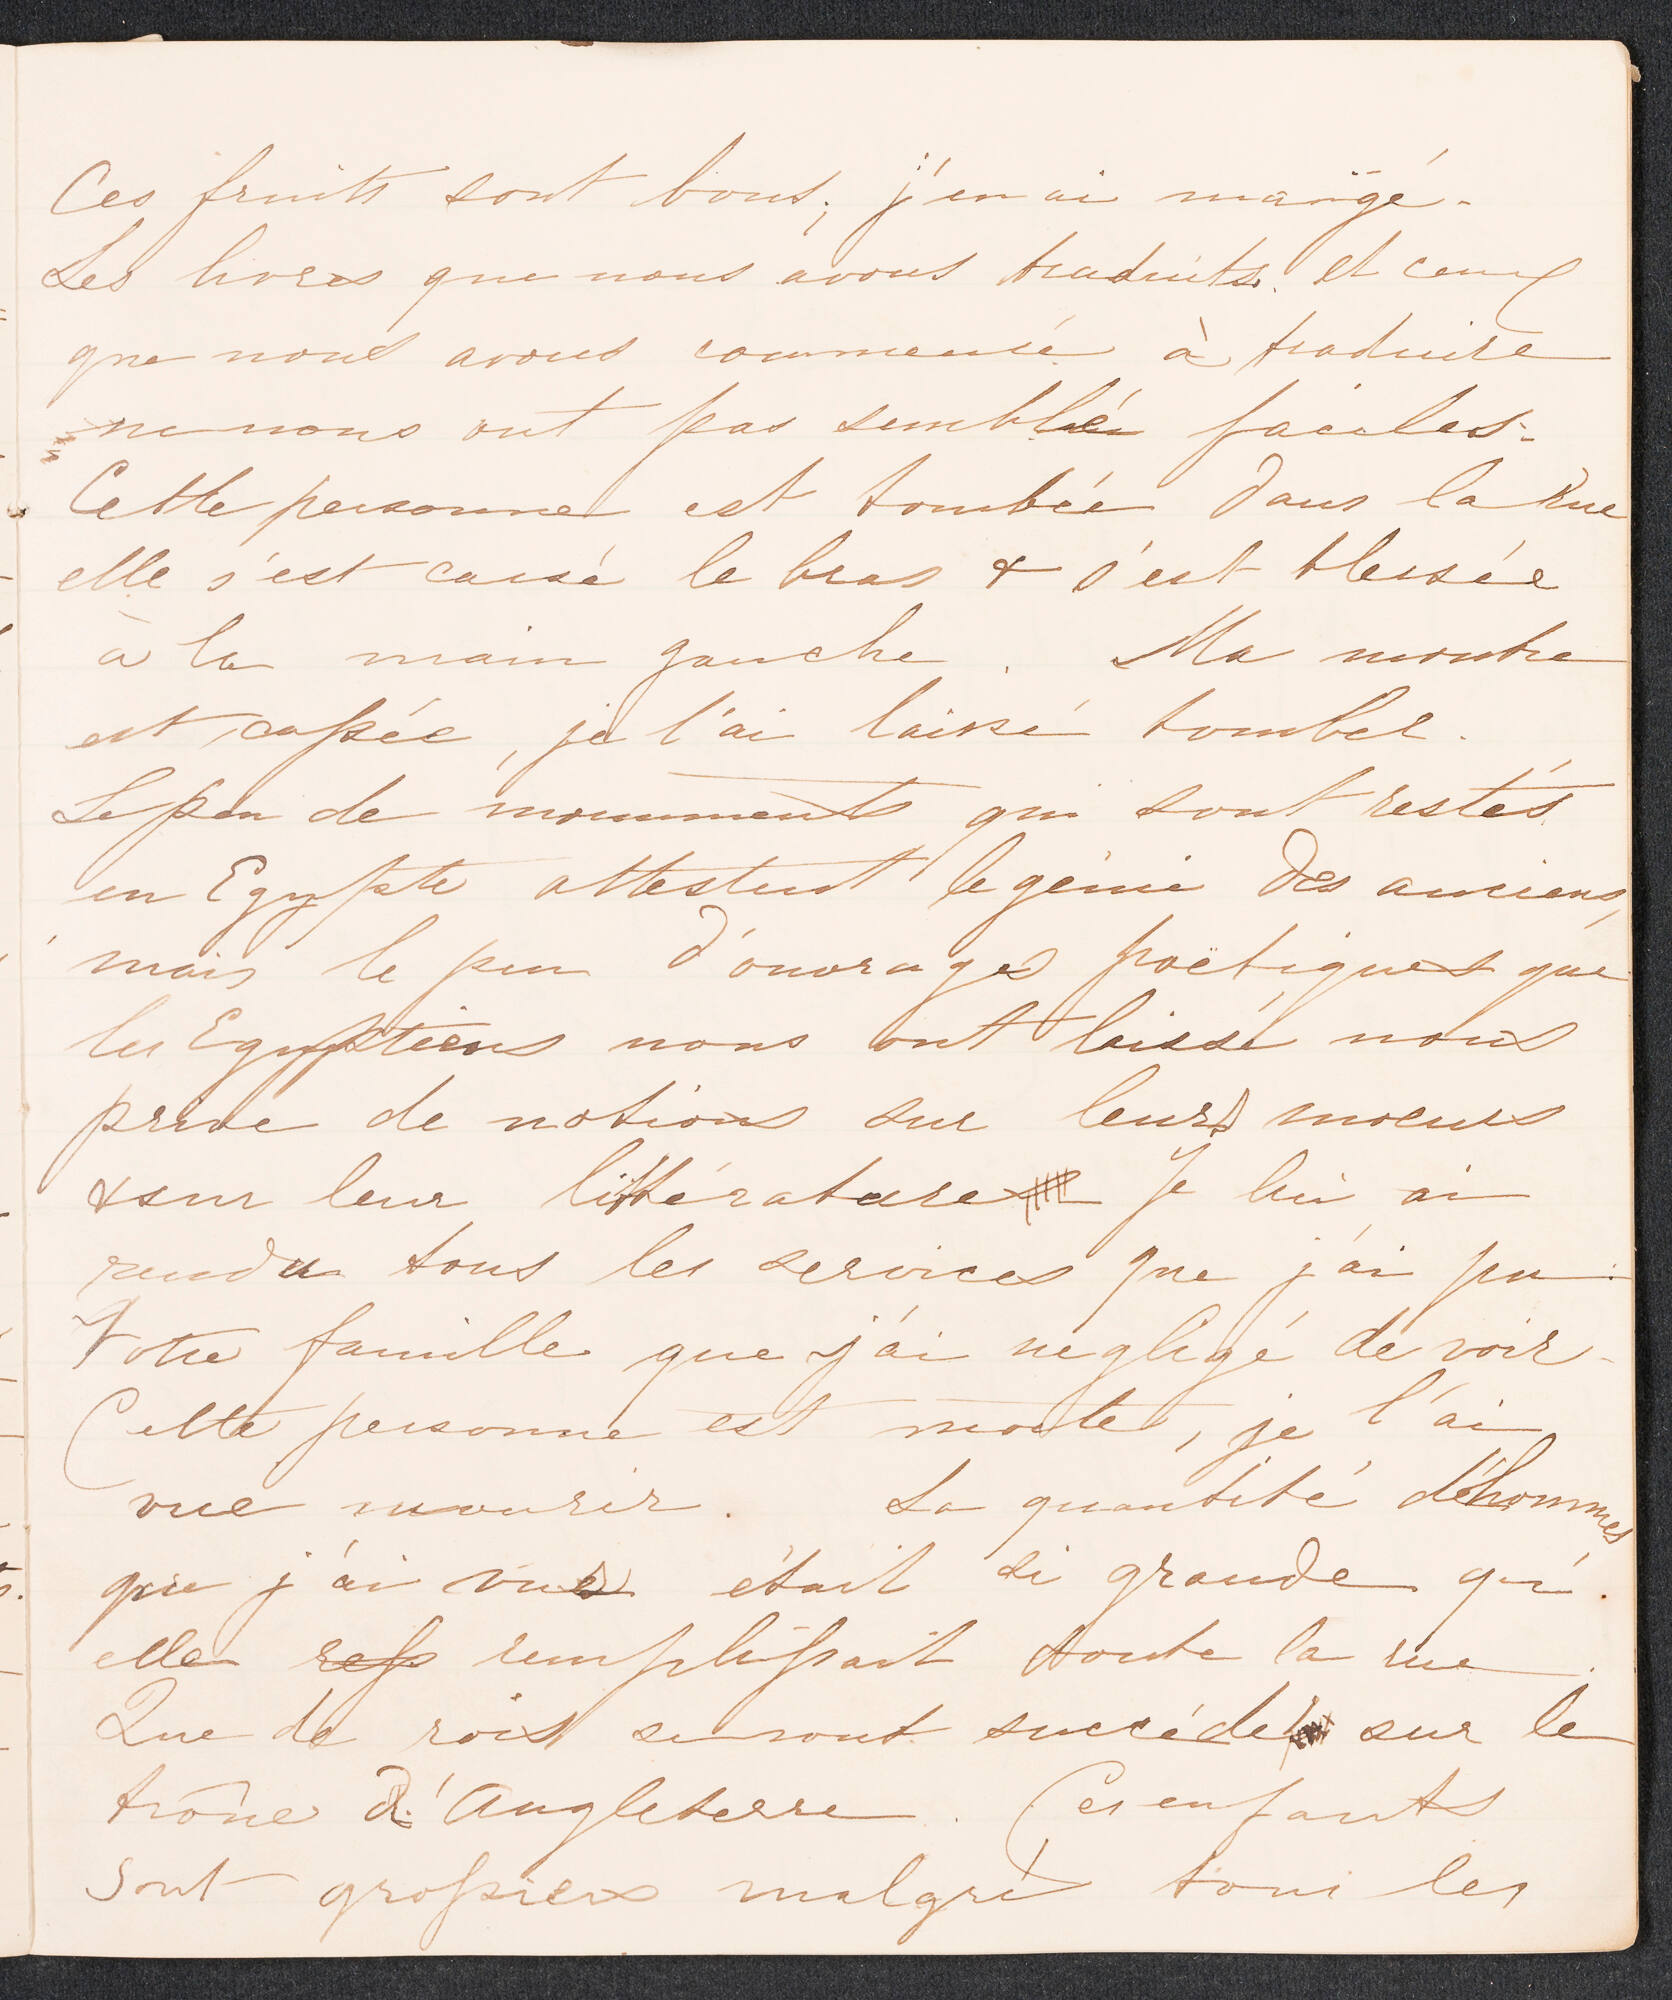 Ces fruits sont bons; j'en ai mangé.
Les livres que nous avons traduits et ceux
que nous avons commencé à traduire
ne nous ont pas semblé faciles.
Cette personne est tombée dans la rue
elle s'est cassé le bras & s'est blessée
à la main gauche. Ma montre
est cassée, je l'ai laissé tomber.
Le peu de monuments qui sont restés
en Egypte attestent le génie des anciens,
mais le peu d'ouvrages poëtiques que
les Egyptiens nous ont laissé nous
prive de notions sur leurs moeurs
& sur leur littérature Je lui ai
rendu tous les services que j'ai pu.
Votre famille que j'ai negligé de voir.
Cette personne est morte, je l'ai
vue mourir. La quantité d'hommes
que j'ai vus était si grande qu'
elle remplissait toute la rue.
Que de rois se sont succédé sur le
trône d'Angleterre. Ces enfants
sont grossiers malgré tous les